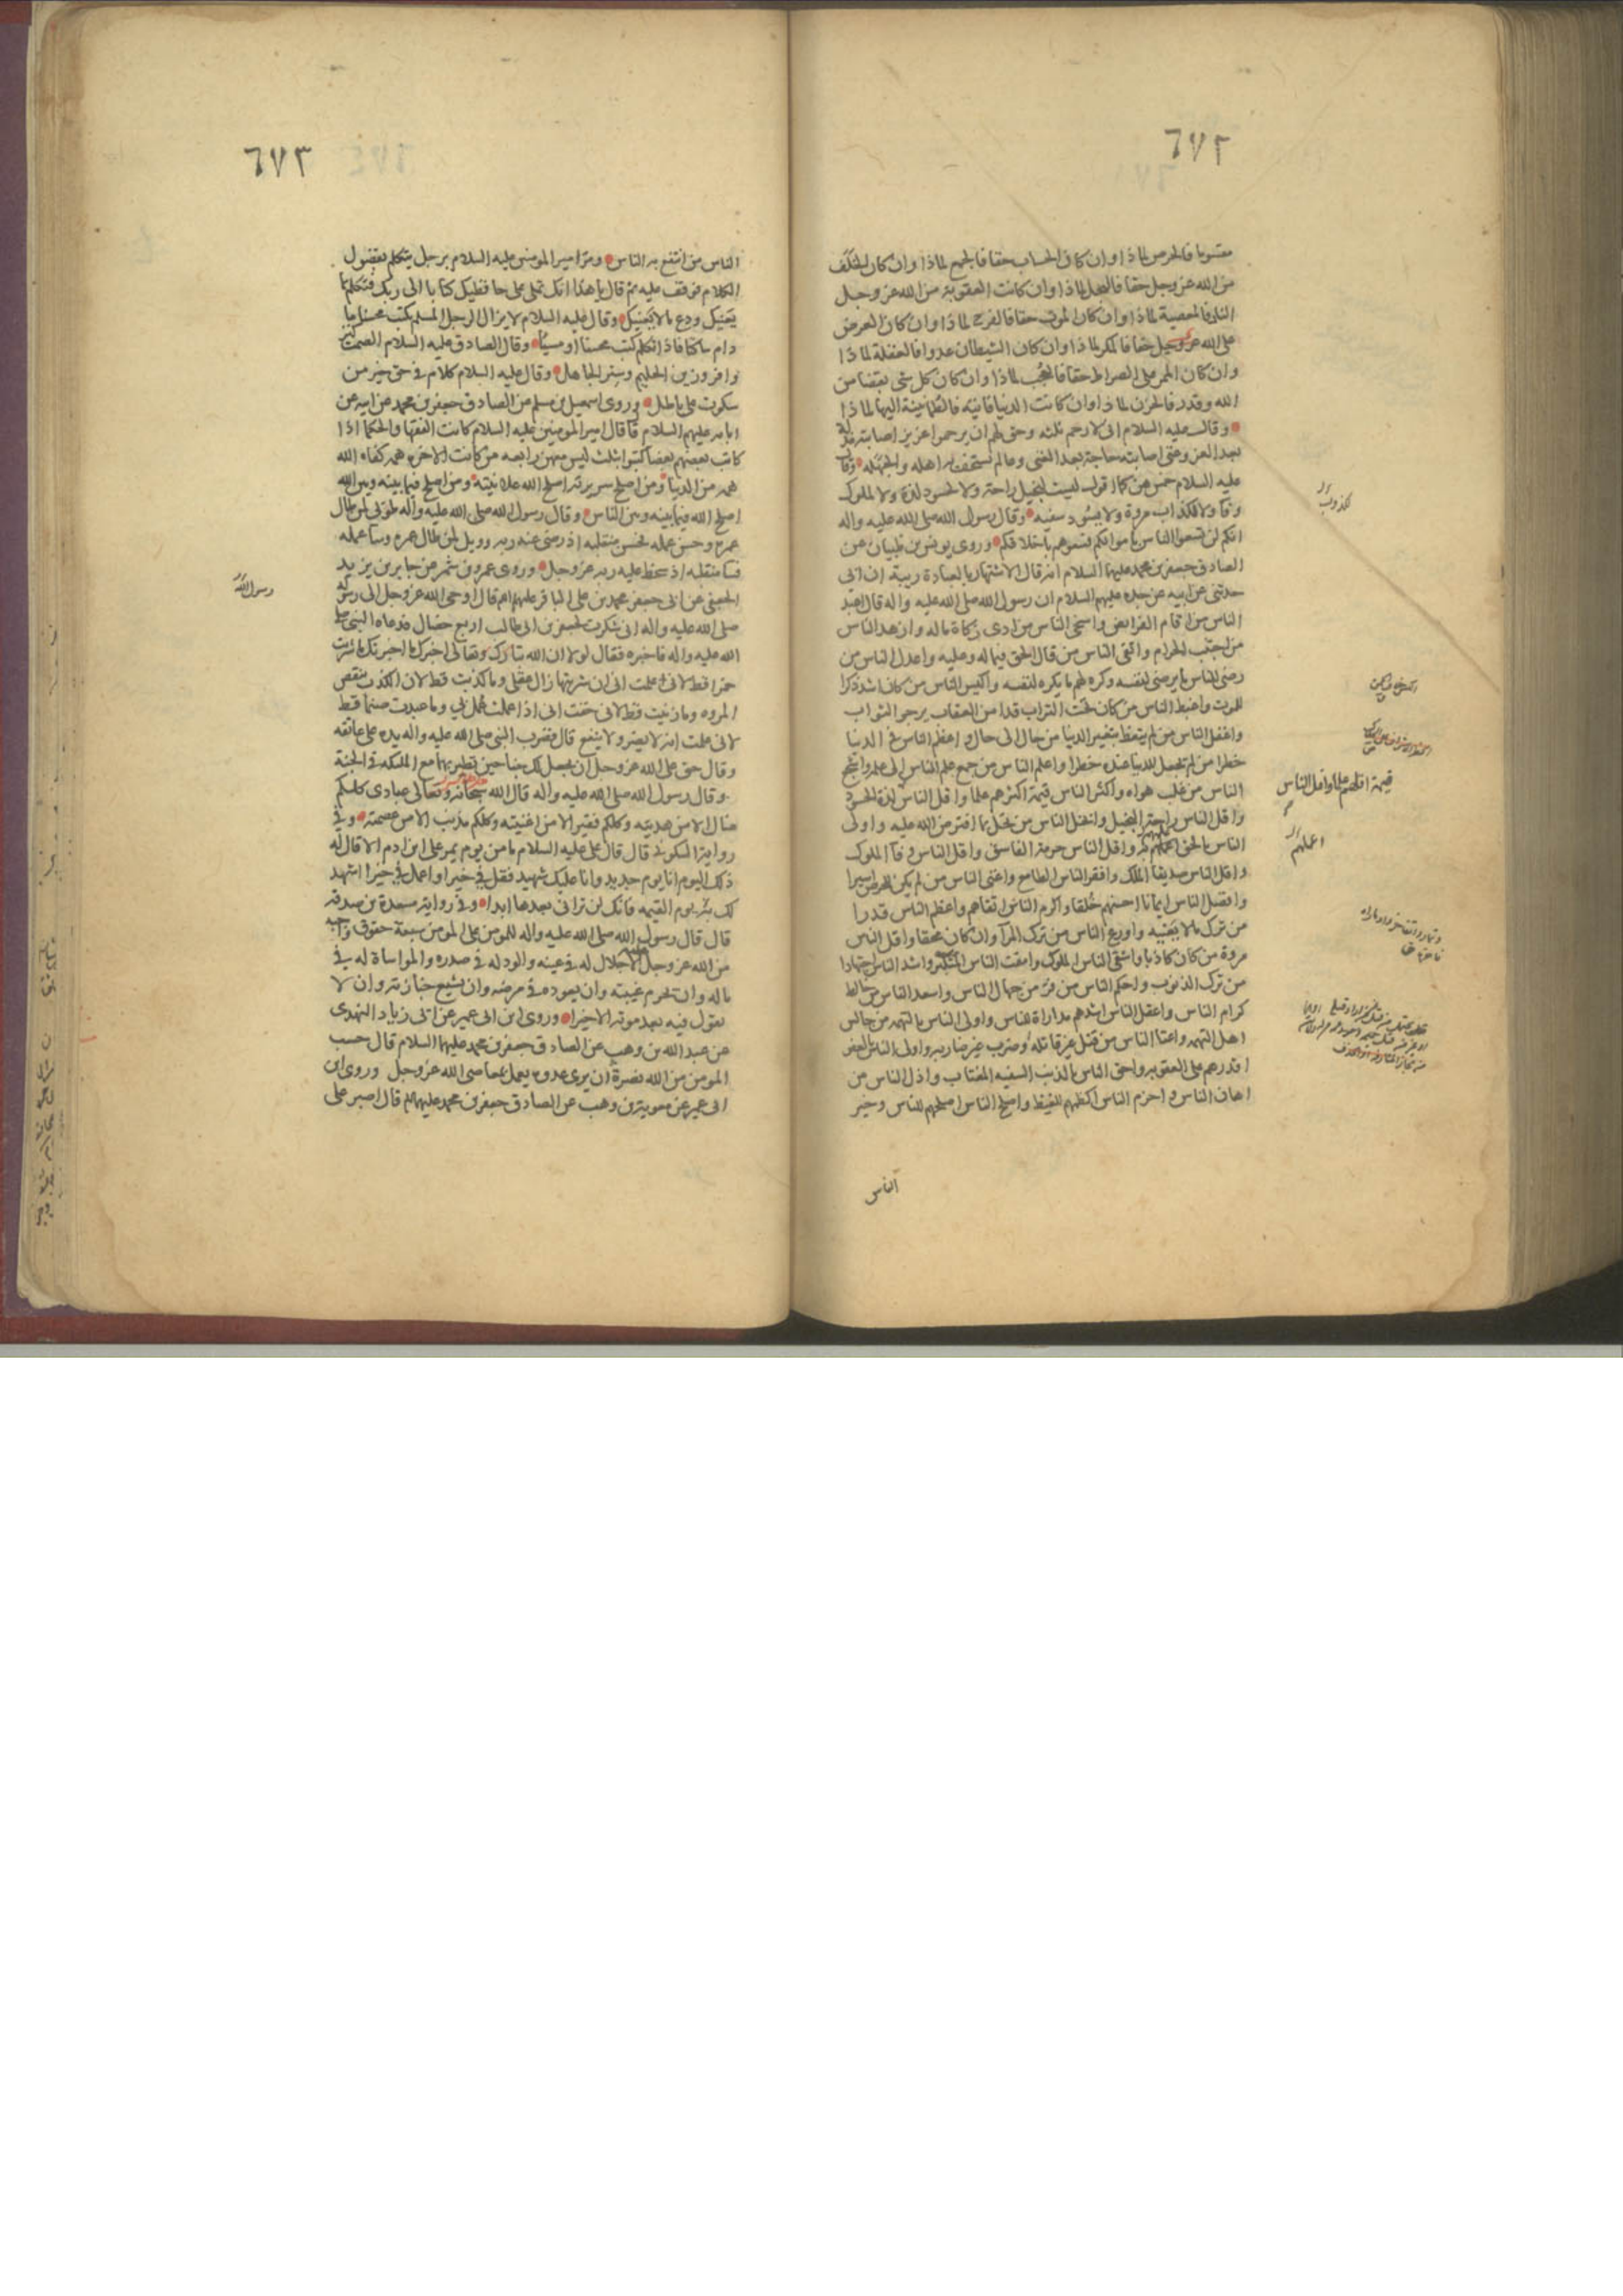 ٦٧٢
مقسوما فالحرص لماذا وان كان الحساب حقا فالجمع لماذا وان كان الخلف
من الله عز وجل حقا فالبخل لماذا وان كانت العقوبة من الله عز وجل
النار فالمعصية لماذا وان كان الموت حقا فالفرح لماذا وان كان العرض
على الله عز وجل حقا فالمكر لماذا وان كان الشيطان عدوا فالغفلة لماذا
وان كان الممر على الصراط حقا فالعجب لماذا وان كان كل شئ بقضا من
الله وقدر فالحزن لماذا وان كانت الدنيا فانية فالطمانينة اليها لماذا
وقال عليه السلام انى لارحم ثلثه وحق لهم ان يرحموا عزيز اصابته مذلة
بعد العز وغنى اصابته حاجة بعد الغنى وعالم يستخف به اهله والجهلة وقال
عليه السلام خمس هن كما اقول ليست لبخيل راحة ولا لحسود لذة ولا لملوك
وفآ ولا لكذاب مروة ولا يسود سفيه وقال رسول الله صلى الله عليه واله
لكذوب
انكم لن تسعوا الناس باموالكم فسعوهم باخلاقكم وروى يونس بن ظبيان عن
الصادق جعفر بن محمد عليهما السلام انه قال الاشتهار بالعبادة ريبة ان ابى
حدثنى عن ابيه عن جده عليهم السلام ان رسول الله صلى الله عليه واله قال اعبد
الناس من اقام الفرايض واسخى الناس من ادى زكاة ماله وازهد الناس
من اجتنب الحرام واتقى الناس من قال الحق فيما له وعليه واعدل الناس من
رضى للناس ما يرضى لنفسه وكره لهم ما يكره لنفسه واكيس الناس من كان اشد ذكرا
للموت واغبط الناس من كان تحت التراب قد امن العقاب يرجو الثواب
واغفل الناس من لم يتعظ بتغير الدنيا من حال الى حال واعظم الناس فى الدنيا
خطرا من لم يجعل للدنيا عنده خطرا واعلم الناس من جمع علم الناس الى علمه واشجع
الناس من غلب هواه واكثر الناس قيمة اكثرهم علما واقل الناس لذة الحسود
قيمة اقلهم علما واقل الناس
واقل الناس راحة البخيل وابخل الناس من بخل بما افترض الله عليه واولى
الناس بالحق اعلمهم به واقل الناس حرمة الفاسق واقل الناس وفآ الملوك
اعملهم
واقل الناس صديقا الملك وافقر الناس الطامع واغنى الناس من لم يكن للحرص اسيرا
وافضل الناس ايمانا احسنهم خلقا واكرم الناس اتقاهم واعظم الناس قدرا
من ترك ما لا يعنيه واورع الناس من ترك المرآ وان كان محقا واقل الناس
مروة من كان كاذبا واشقى الناس الملوك وامقت الناس المتكبر واشد الناس اجتهادا
من ترك الذنوب واحكم الناس من فر من جهال الناس واسعد الناس من خالط
كرام الناس واعقل الناس اشدهم مداراة للناس واولى الناس بالتهمه من جالس
اهل التهمه واعتا الناس من قتل غير قاتله وضرب غير ضاربه واولى الناس بالعفو
اقدرهم على العقوبه واحق الناس بالذنب السفيه المغتاب واذل الناس من
اهان الناس واحزم الناس اكظمهم للغيظ واصلح الناس اصلحهم للناس وخير
الناس
٦٧٣
الناس من انتفع به الناس ومر امير المومنين عليه السلام برجل يتكلم بفضول
الكلام فوقف عليه ثم قال يا هذا انك تملى على حافظيك كتابا الى ربك فتكلم بما
يعنيك ودع ما لا يعنيك وقال عليه السلام لا يزال الرجل المسلم يكتب محسنا ما
دام ساكتا فاذا تكلم كتب محسنا او مسيئا وقال الصادق عليه السلام الصمت كنز
وافر وزين الحليم وستر الجاهل وقال عليه السلام كلام فى حق خير من
سكوت على باطل وروى اسمعيل بن مسلم عن الصادق جعفر بن محمد عن ابيه عن
ابائه عليهم السلام قال قال امير المومنين عليه السلام كانت الفقها والحكما اذا
كاتب بعضهم بعضا كتبوا بثلث ليس معهن رابعه من كانت الاخرة همه كفاه الله
همه من الدنيا ومن اصلح سريرته اصلح الله علانيته ومن اصلح فيما بينه وبين الله
اصلح الله فيما بينه وبين الناس وقال رسول الله صلى الله عليه واله طوبى لمن طال
عمره وحسن عمله فحسن منقلبه اذ رضى عنه ربه وويل لمن طال عمره وسا عمله
فسا منقلبه اذ سخط عليه ربه عز وجل وروى عمرو بن شمر عن جابر بن يزيد
الجعفى عن ابى جعفر محمد بن على الباقر عليهم السلام قال اوحى الله عز وجل الى رسوله
رسول الله
صلى الله عليه واله انى شكرت لجعفر بن ابى طالب اربع خصال فدعاه النبى صلى
الله عليه واله فاخبره فقال لولا ان الله تبارك وتعالى اخبرك ما اخبرتك ما شربت
خمرا قط لانى علمت انى ان شربتها زال عقلى وما كذبت قط لان الكذب ينقص
المروه وما زنيت قط لانى خفت انى اذا عملت عمل بى وما عبدت صنما قط
لانى علمت انه لا يضر ولا ينفع قال فضرب النبى صلى الله عليه واله يده على عاتقه
وقال حق على الله عز وجل ان يجعل لك جناحين تطير بهما مع الملئكه فى الجنة
وقال رسول الله صلى الله عليه واله قال الله سبحانه وتعالى عبادى كلكم
ضال الا من هديته وكلكم فقير الا من اغنيته وكلكم مذنب الا من عصمته وفى
رواية السكونى قال قال على عليه السلام ما من يوم يمر على ابن ادم الا قال له
ذلك اليوم انا يوم جديد وانا عليك شهيد فقل فى خيرا واعمل فى خيرا اشهد
لك به يوم القيمه فانك لن ترانى بعدها ابدا وفى رواية مسعدة بن صدقة
قال قال رسول الله صلى الله عليه واله للمومن على المومن سبعة حقوق واجبه
من الله عز وجل الاجلال له فى عينه والود له فى صدره والمواساة له فى
ماله وان يحرم غيبته وان يعوده فى مرضه وان يشيع جنازته وان لا
يقول فيه بعد موته الا خيرا وروى ابن ابى عمير عن ابى زياد النهدى
عن عبد الله بن وهب عن الصادق جعفر بن محمد عليهما السلام قال حسب
المومن من الله نصرة ان يرى عدوه يعمل بمعاصى الله عز وجل وروى ابن
ابى عمير عن معوية بن وهب عن الصادق جعفر بن محمد عليهما السلام قال اصبر على